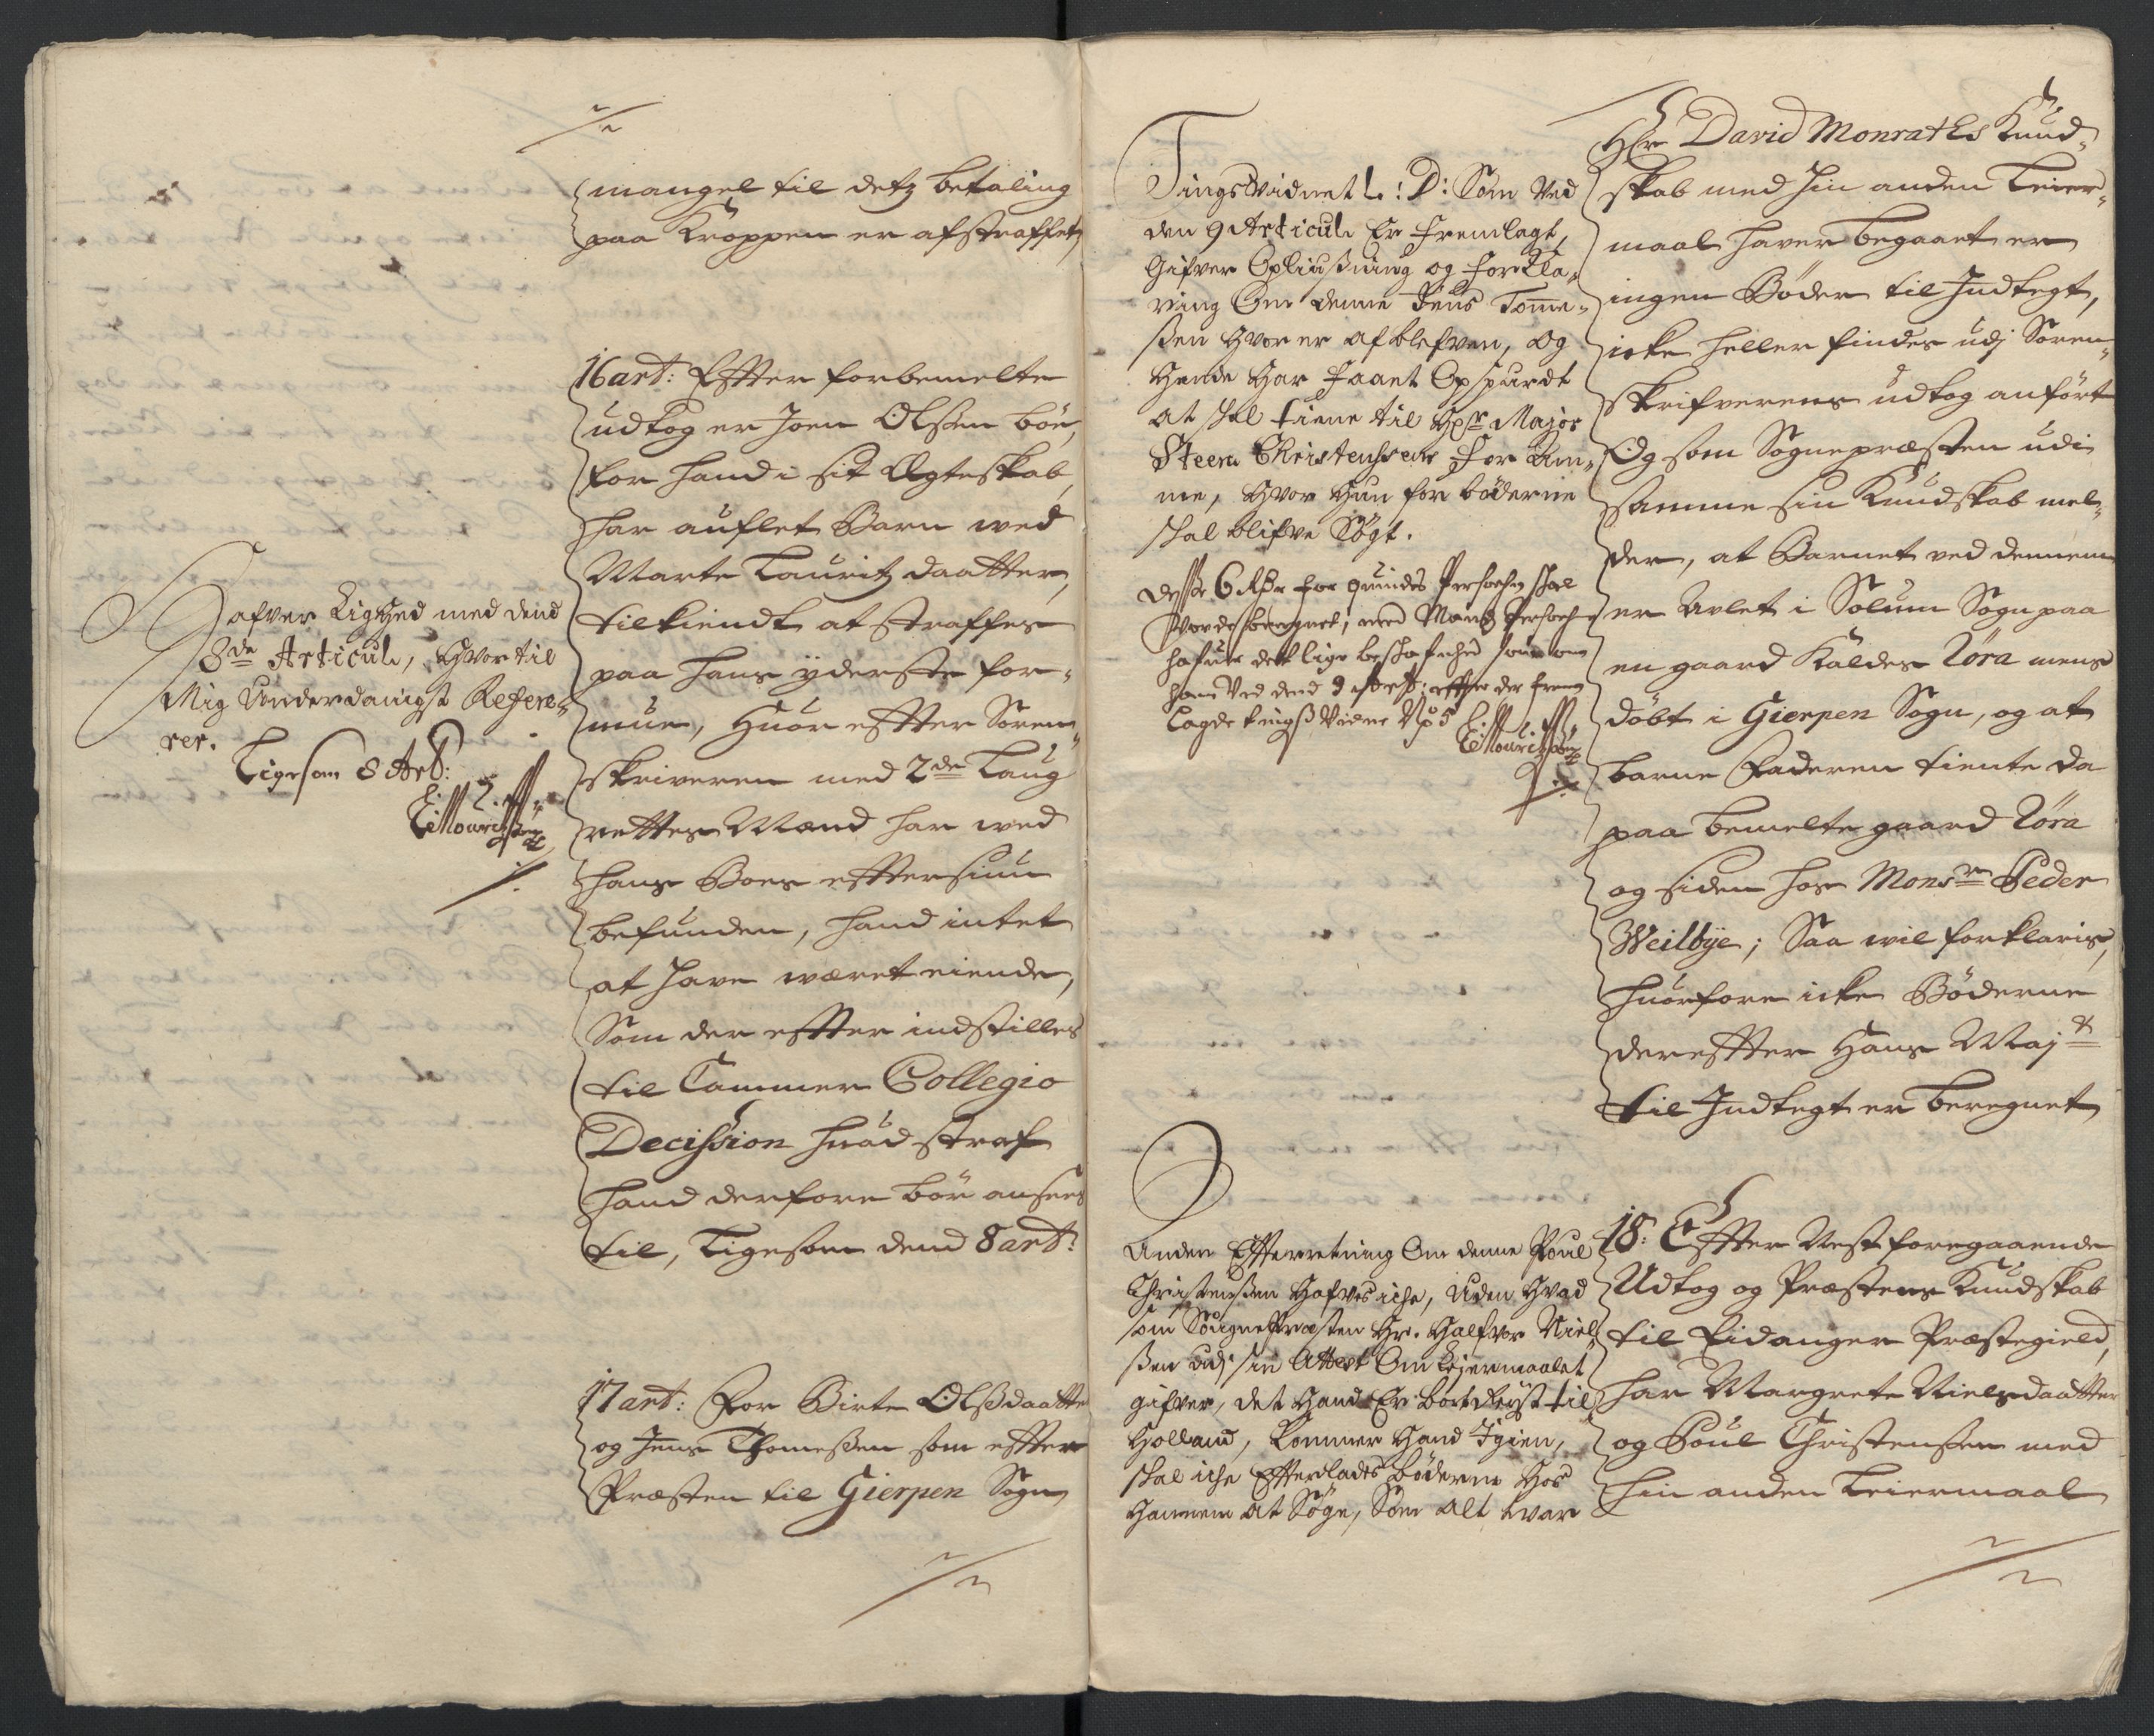 mangel til detz betaling
paa Kroppen er afstraffet,
16 art: Effter forbemelte
udtog er Joen Olsen bôe,
for hand i sit Ægteskab,
har auflet Barn wed
Marte Lauritz daatter,
tilkiendt at straffes
paa hans ÿderste for-
mue, Huor effter Soren-
skriveren med 2de Laug
rettes Mænd har wed
hans Boes effttersiun
befunden, hand intet
at have wæret eiende,
Som der effter indstilles
til Cammer Collegio
Decission huad straf
hand derfore bör ansees
til, Ligesom dend 8 art:
17 art: For Birte Olsdaatter
og Jens Thomesen som effter
Præsten til Gierpen Sogn
Hafver Lighed med dend
8de Articul, Hvortil
Mig Underdanigst Refere-
rer.
Ligesom 8 Art:
Tingsvidnet L: D: Som Ved
den 9 Articul Er fremlagt,
Gifver Opliusning og forkla-
ring Om denne Jens Tome-
sen Hvor er afblefven, og
Hende Har faaet Opspurdt
at skal tiene til Hr Major
Steen Christensen for Am-
me, Hvor Hun for bøderne
skal blifve Søgt.
Desse 6 Rdr for quindes Persohn skal
vorde beregnet, med Mands Persohn
hafuer det lige beskafenhed som om
ham Ved dend 9 Art: effter der frem
Lagde tingsVidne No 5
Anden Effterretning Om denne Poul
Christensen Hafves iche, Uden Hvad
som SougnePræsten Hr. Halfvor Niel-
sen udj sin Attest Om Leiermaalet
gifver, det Hand Er bortreyst til
Holland, kommer Hand Igien,
skal iche Effterlades bøderne Hos
Hannem at Søge, Som alt hvar
Hr David Monraths Kund-
skab med hin anden Leier-
maal haver begaaet er
ingen Böder til Indtegt,
icke heller findes udj Soren-
skrifverens udtog anfört
Og som Sognepræsten udi
samme sin Kundskab mel-
der, at Barnet ved dennem
er Avlet i Solum Sogn paa
en gaard Kaldes Röra mens
döbt i Gierpen Sogn, og at
barne Faderen tiente da
paa bemelte gaard Röra
og siden hos Monsr Peder
Weilbÿe; Saa wil forklaris,
huorfore icke Böderne
dereffter Hans Majt
til Indtegt er beregnet,
18: Effter Nest foregaaende
Udtog og Præstens Kundskab
til Eidanger Præstegield,
har Margrete Nielsdaatter
og Poul Christensen med
hin anden Leiermaal